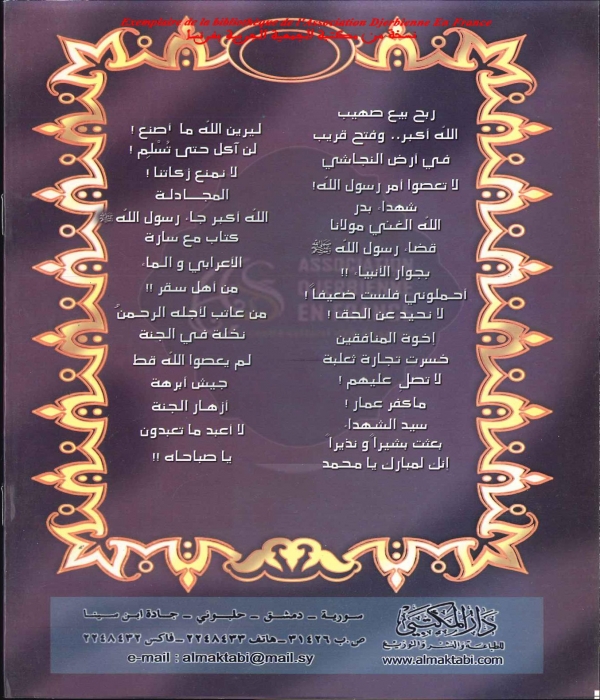 Exemplaire de la bibliothèque de l'Association Djerbienne En France
نسخة من مكتبة الجمعية الجربية بفرنسا
ربح بيع صهيب
الله أكبر.. وفتح قريب
في أرض النجاشي
لا تعصوا أمر رسول الله!
شهداء بدر
الله الغني مولانا
قضاء رسول الله ﷺ
بجوار الأنبياء !!
احملوني فلست ضعيفا !
لا نحيد عن الحق !
إخوة المنافقين
خسرت تجارة ثعلبة
لا تصل عليهم !
ماكفر عمار !
سيد الشهداء
بعثت بشيراً و نذيراً
انك لمبارك يا محمد
ليرين الله ما أصنع !
لن آكل حتى تُسْلِم !
لا نمنع زكاتنا !
المجــادلة
الله أكبر جاء رسول الله ﷺ
كتاب مع سارة
الأعرابي و الماء
من أهل سقر !!
من عاتب لأجله الرحمنُ
نخلة في الجنة
لم يعصوا الله قط
جيش أبرهة
أزهار الجنة
لا أعبد ما تعبدون
يا صباحاه !!
ASSOCIATION
DJERBIENNE
EN
دار المكتبي
للطباعة والنشر والتوزيع
www.almaktabi.com
سورية – دمشق – حلبوني – جادة ابن سينا
ص.ب ٣١٤٢٦ – هاتف ٢٢٤٨٤٣٣ – فاكس ٢٢٤٨٤٣٢
e-mail : almaktabi@mail.sy